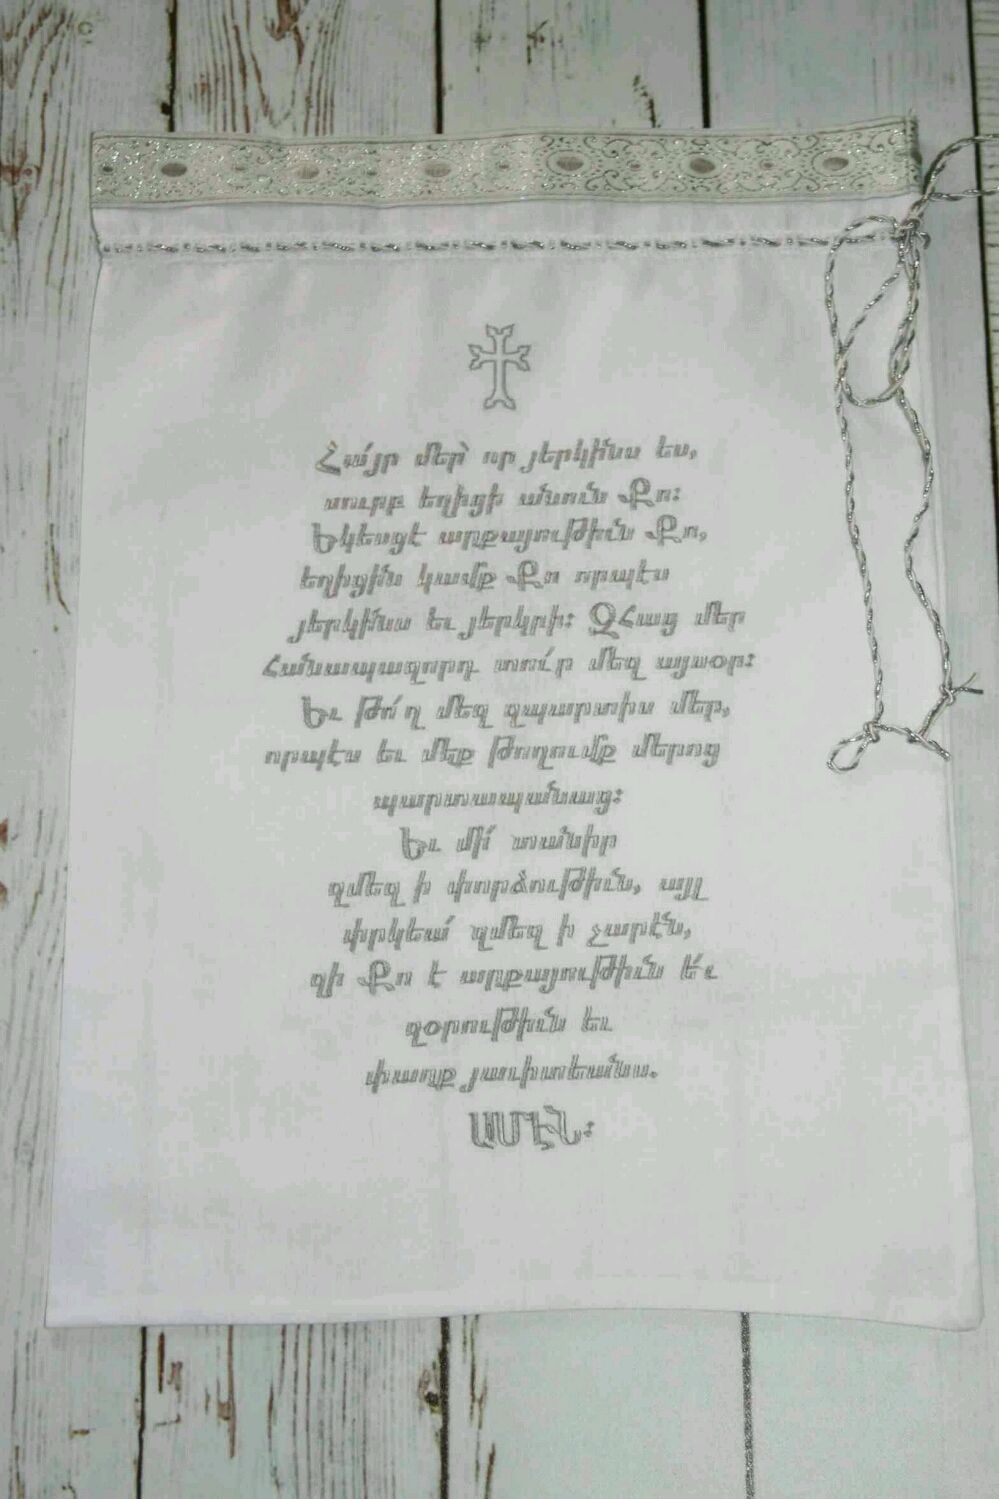 Հա՛յր մեր՝ որ յերկինս ես,
սուրբ եղիցի անուն Քո:
Եկեսցէ արքայութիւն Քո,
եղիցին կամք Քո որպէս
յերկինս եւ յերկրի: ԶՀաց մեր
Հանապազորդ տու՛ր մեզ այսօր:
Եւ թո՛ղ մեզ զպարտիս մեր,
որպէս եւ մեք թողումք մերոց
պարտապանաց:
Եւ մի՛ տանիր
զմեզ ի փորձութիւն, այլ
փրկեա՛ զմեզ ի չարէն,
զի Քո է արքայութիւն ե՛ւ
զօրութիւն եւ
փառք յաւիտեանս.
ԱՄԷՆ: